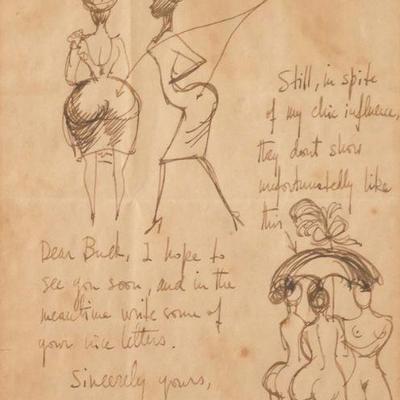 Still, in spite
of my chic influence,
they don't show
unfortunatedly like
this
Dear Buck, I hope to
see you soon, and in the
meantime write some of
your nice letters.
Sincerely yours,